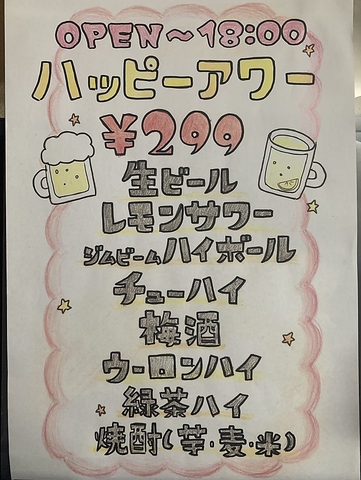 OPEN～18:00
ハッピーアワー
¥299
生ビール
レモンサワー
ジムビームハイボール
チューハイ
梅酒
ウーロンハイ
緑茶ハイ
焼酎(芋・麦・米)